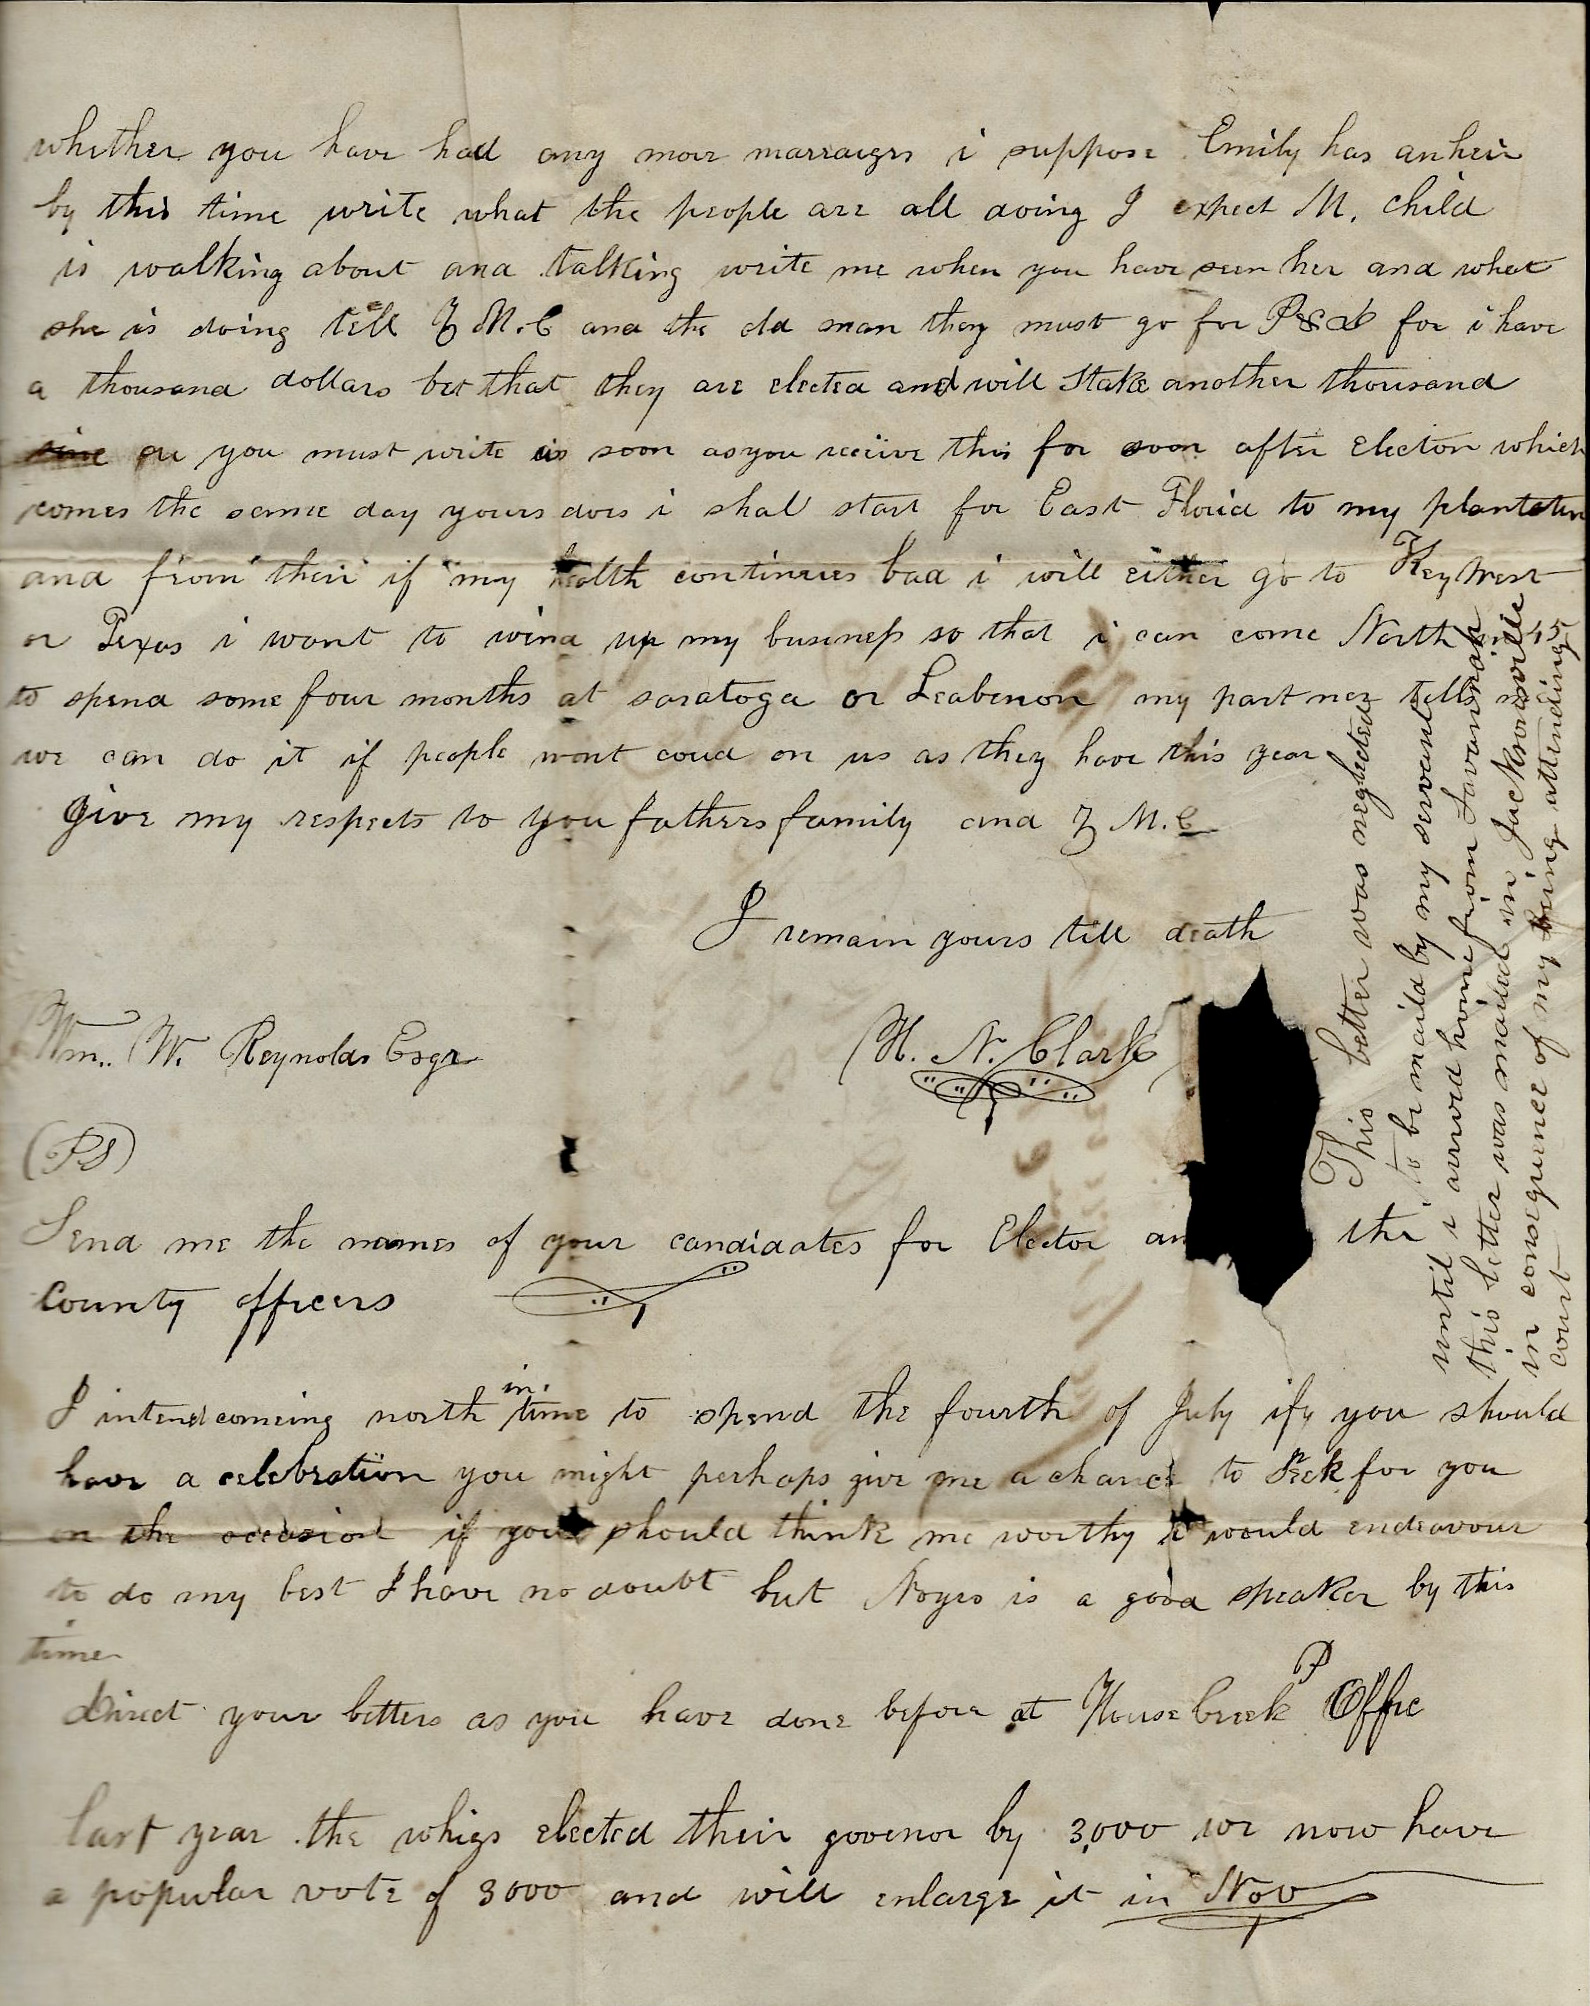 whether you have had any more marraiges i suppose Emily has an heir
by this time write what the people are all doing I expect M. child
is walking about and talking write me when you have seen her and what
she is doing tell Z M.C and the old man they must go for P & D for i have
a thousand dollars bet that they are elected and will stake another thousand
on you must write as soon as you receive this for soon after Electon which
comes the same day yours does i shal start for East Florid to my plantatin
and from their if my health continues bad i will either go to Key West
or Texas i want to wind up my business so that i can come North in 45
to spend some four months at saratoga or Leabenon my partner tells me
we can do it if people wont coud on us as they have this year
Give my respects to you fathers family and Z M.C
I remain yours till death
Wm. W. Reynolds Esqr
H. N. Clark
(PS)
Send me the names of your candidates for Elector an the
County officers
I intend comeing north in time to spend the fourth of July ify you should
have a celebration you might perhaps give me a chance to Peek for you
on the occasion if you should think me worthy i would endeavour
to do my best I have no doubt but Noyes is a good speaker by this
time
direct your letters as you have done before at House Creek P Offic
last year the whigs elected their govenor by 3,000 we now have
a popular vote of 3000 and will enlarge it in Nov
This letter was neglected
to be maild by my servant
until i arrived home from Savannah
this letter was mailed in Jacksonville
in consequence of my being attending
court